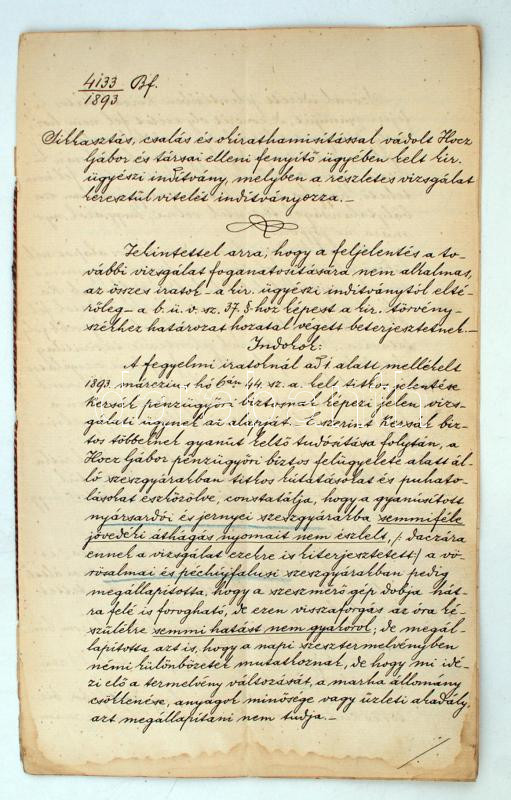 4133 Bf.
1893
Sikkasztás, csalás és okirathamisitással vádolt Hocz
Gábor és társai elleni fenyitő ügyében kelt kir.
ügyészi inditvány, melyben a részletes vizsgálat
keresztül vitelét inditványozza.—
Tekintettel arra, hogy a feljelentés a to-
vábbi vizsgálat foganatositására nem alkalmas,
az összes iratok - a kir. ügyészi inditványtól elté-
rőleg - a b. ü. v. sz. 37. §-hoz képest a kir. törvény-
székhez határozat hozatal végett beterjesztetnek.—
Indokok:
A fegyelmi iratoknál a)1 alatt mellékelt
1893. márczius hó 6án 44. sz. a. kelt titkos jelentése
Kersék pénzügyőri biztosnak képezi jelen vizs-
gálati ügynek az alapját. E szerint Kersék biz-
tos többeknek gyanút keltő tudósitása folytán, a
Hocz Gábor pénzügyőri biztos felügyelete alatt ál-
ló szeszgyárakban titkos kutatásokat és puhato-
lásokat eszközölve, constatálja, hogy a gyanúsitott
nyársardói és jernyei szeszgyárakba semmiféle
jövedéki áthágás nyomait nem észlelt, /: daczára
ennek a vizsgálat ezekre is kiterjesztetett :/ a vö-
rösalmai és péchújfalusi szeszgyárakban pedig
megállapitotta, hogy a szeszmérő gép dobja hát-
ra felé is forogható, de ezen visszaforgás az óra ké-
szülékre semmi hatást nem gyakorol; de megál-
lapitotta azt is, hogy a napi szesztermelvényben
némi különbözetek mutatkoznak, de hogy mi idé-
zi elő a termelvény változását, a marha állomány
csökkenése, anyagok minősége vagy üzleti akadály,
azt megállapitani nem tudja.—